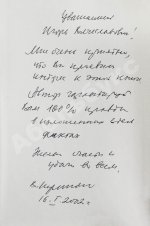 Уважаемый
Игорь Вячеславович!
Мне очень приятно,
что Вы проявили
интерес к этой книге
Автор гарантирует
Вам 100% правды
в изложенных в ней
фактах
Желаю счастья и
удачи во всём.
16. 2002г.